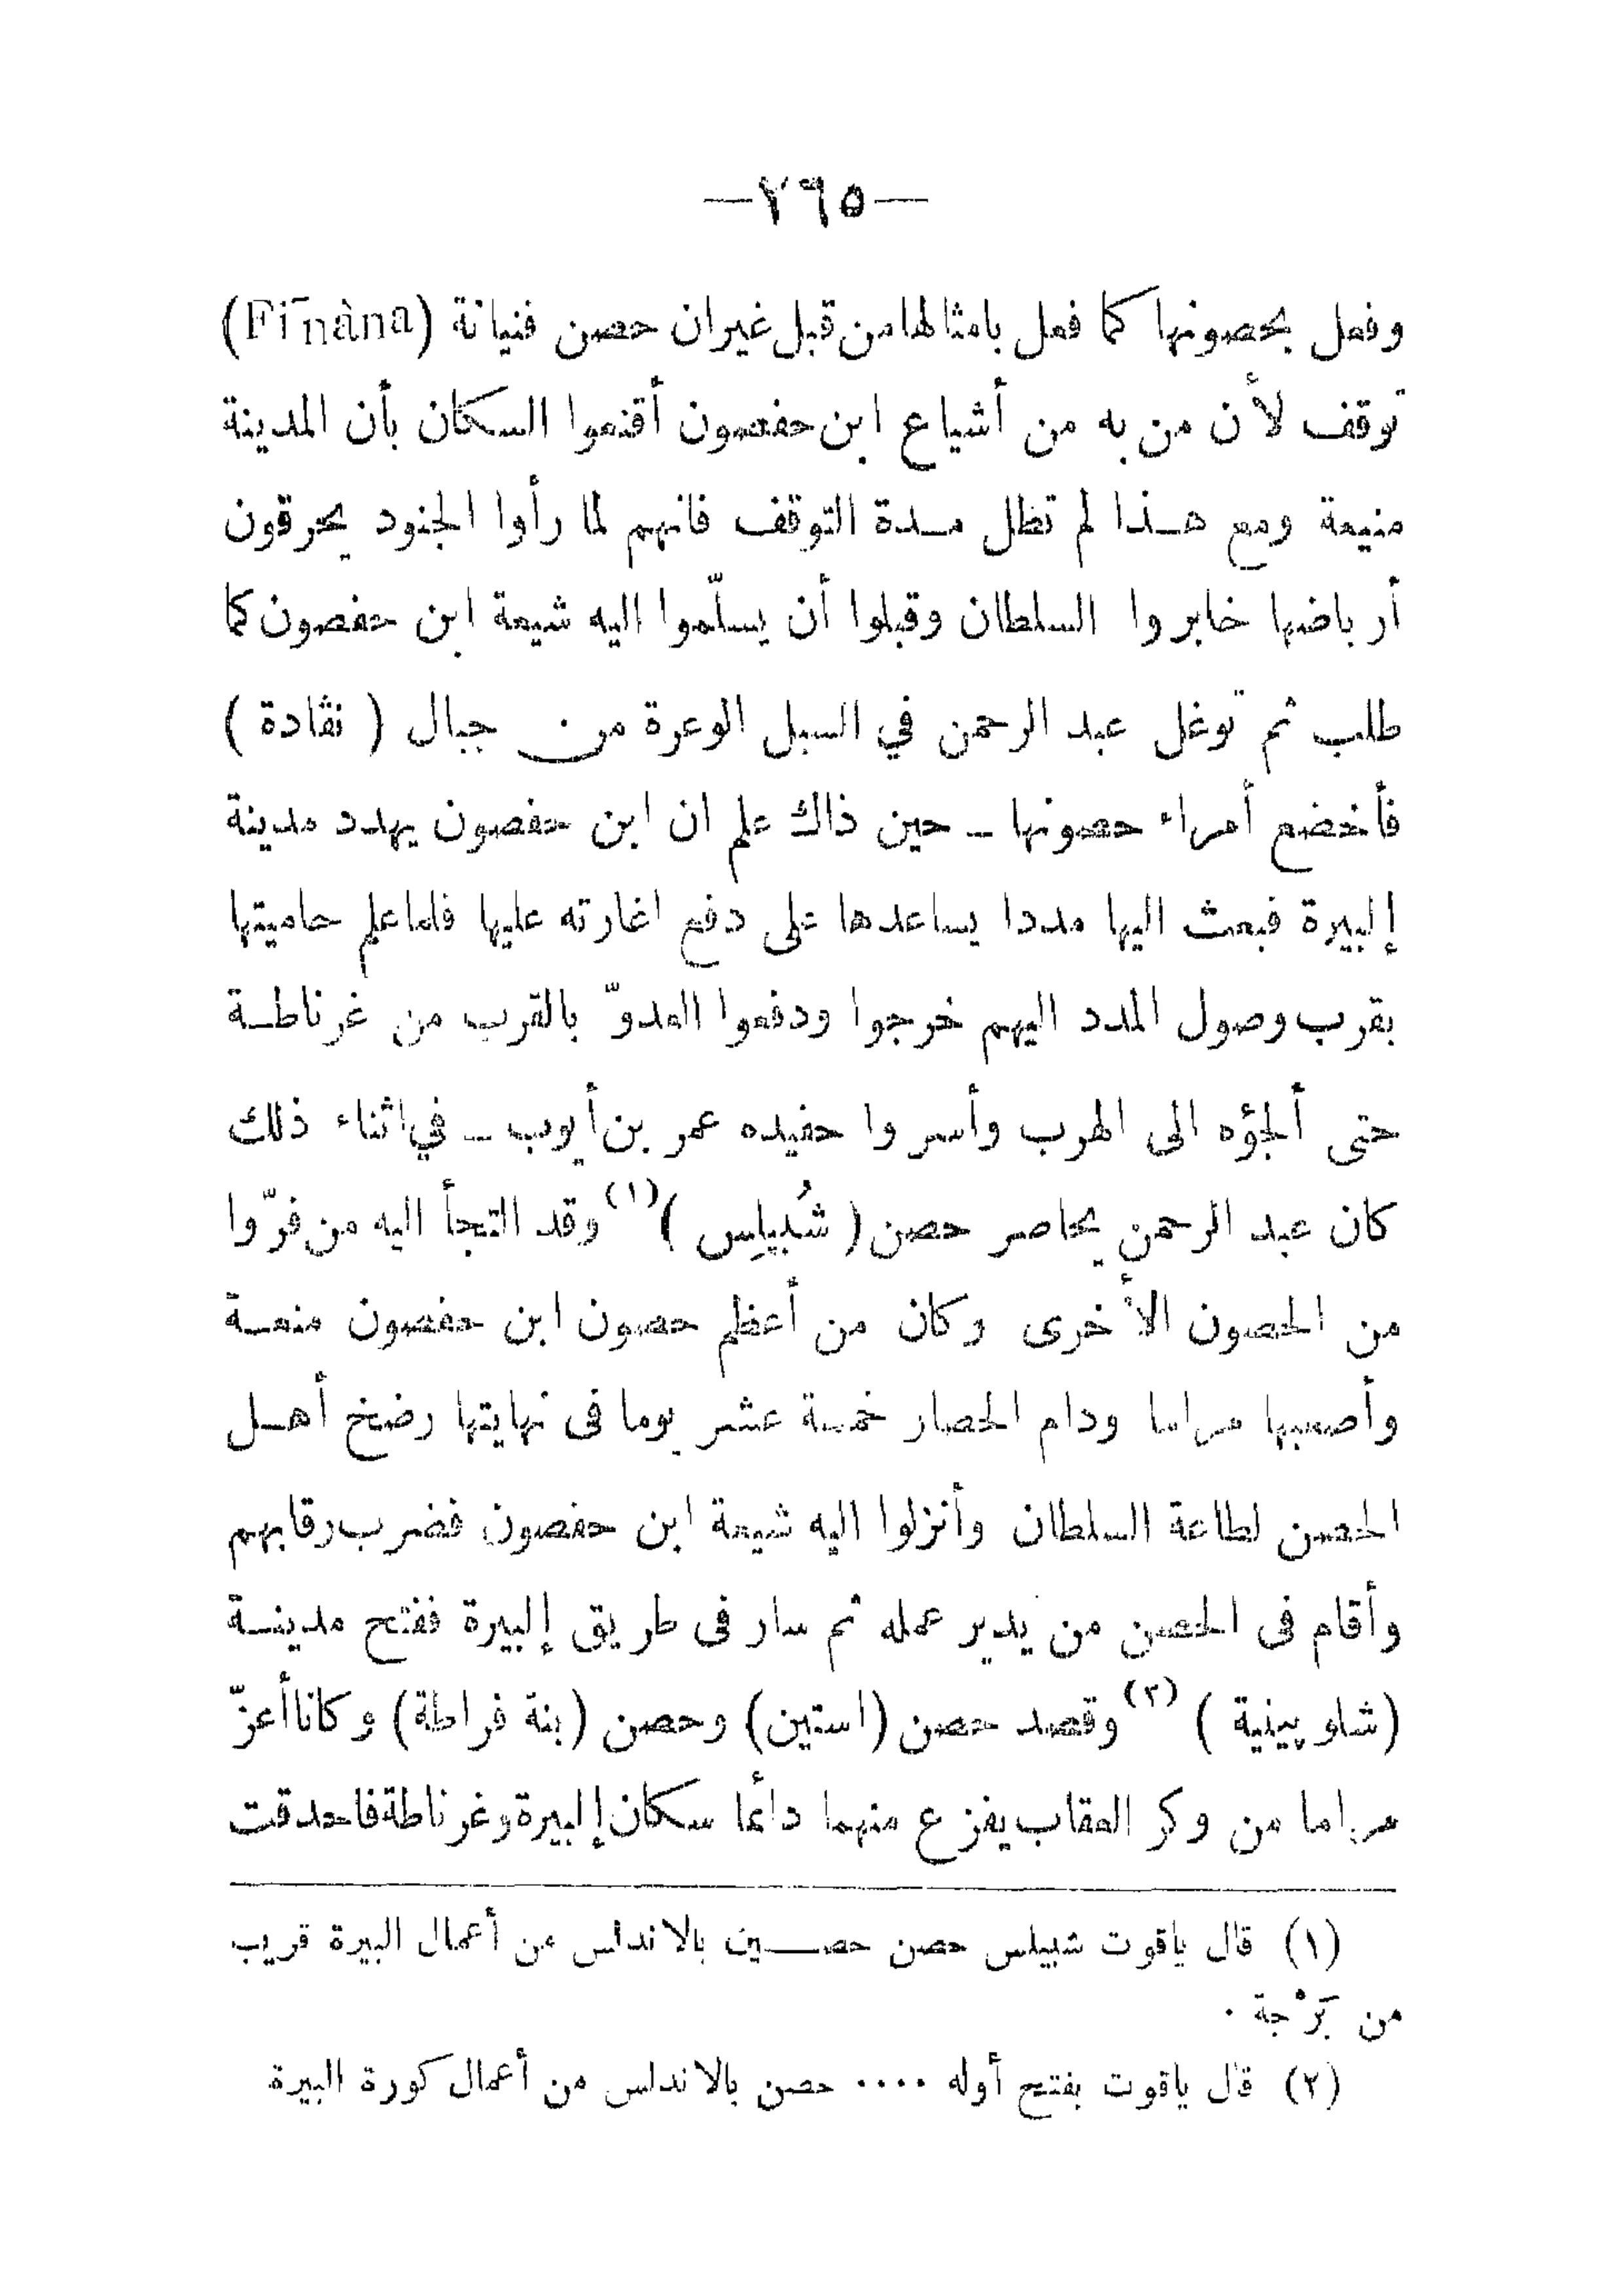 —٢٦٥—
وفعل بحصونها كما فعل بامثالها من قبل غير ان حصن فنيانة (Fiñàna)
توقف لأن من به من أشياع ابن حفصون أقنعوا السكان بأن المدينة
منيعة ومع هـذا لم تطل مـدة التوقف فانهم لما رأوا الجنود يحرقون
أرباضها خابروا السلطان وقبلوا أن يسلّموا اليه شيعة ابن حفصون كما
طلب ثم توغل عبد الرحمن في السبل الوعرة من جبال ( نڤادة )
فأخضع أمراء حصونها ـ حين ذاك علم ان ابن حفصون يهدد مدينة
إلبيرة فبعث اليها مددا يساعدها على دفع اغارته عليها فلما علم حاميتها
بقرب وصول المدد اليهم خرجوا ودفعوا العدوّ بالقرب من غرناطـة
حتى ألجؤه الى الهرب وأسروا حفيده عمر بن أيوب ـ في اثناء ذلك
كان عبد الرحمن يحاصر حصن ( شُبيلِس )(١) وقد التجأ اليه من فرّوا
من الحصون الأخرى وكان من أعظم حصون ابن حفصون منعـة
وأصعبها مراما ودام الحصار خمسة عشر يوما فى نهايتها رضخ أهـل
الحصن لطاعة السلطان وأنزلوا اليه شيعة ابن حفصون فضرب رقابهم
وأقام فى الحصن من يدير عمله ثم سار فى طريق إلبيرة ففتح مدينـة
(شلوبينية )(٢) وقصد حصن (استين) وحصن (بنة فراطة) وكانا أعزّ
مراما من وكر العقاب يفزع منهما دائما سكان إلبيرة وغرناطة فاحدقت
(١) قال ياقوت شبيلس حصن حصـين بالاندلس من أعمال البيرة قريب
من بَرْجة .
(٢) قال ياقوت بفتح أوله .... حصن بالاندلس من أعمال كورة البيرة